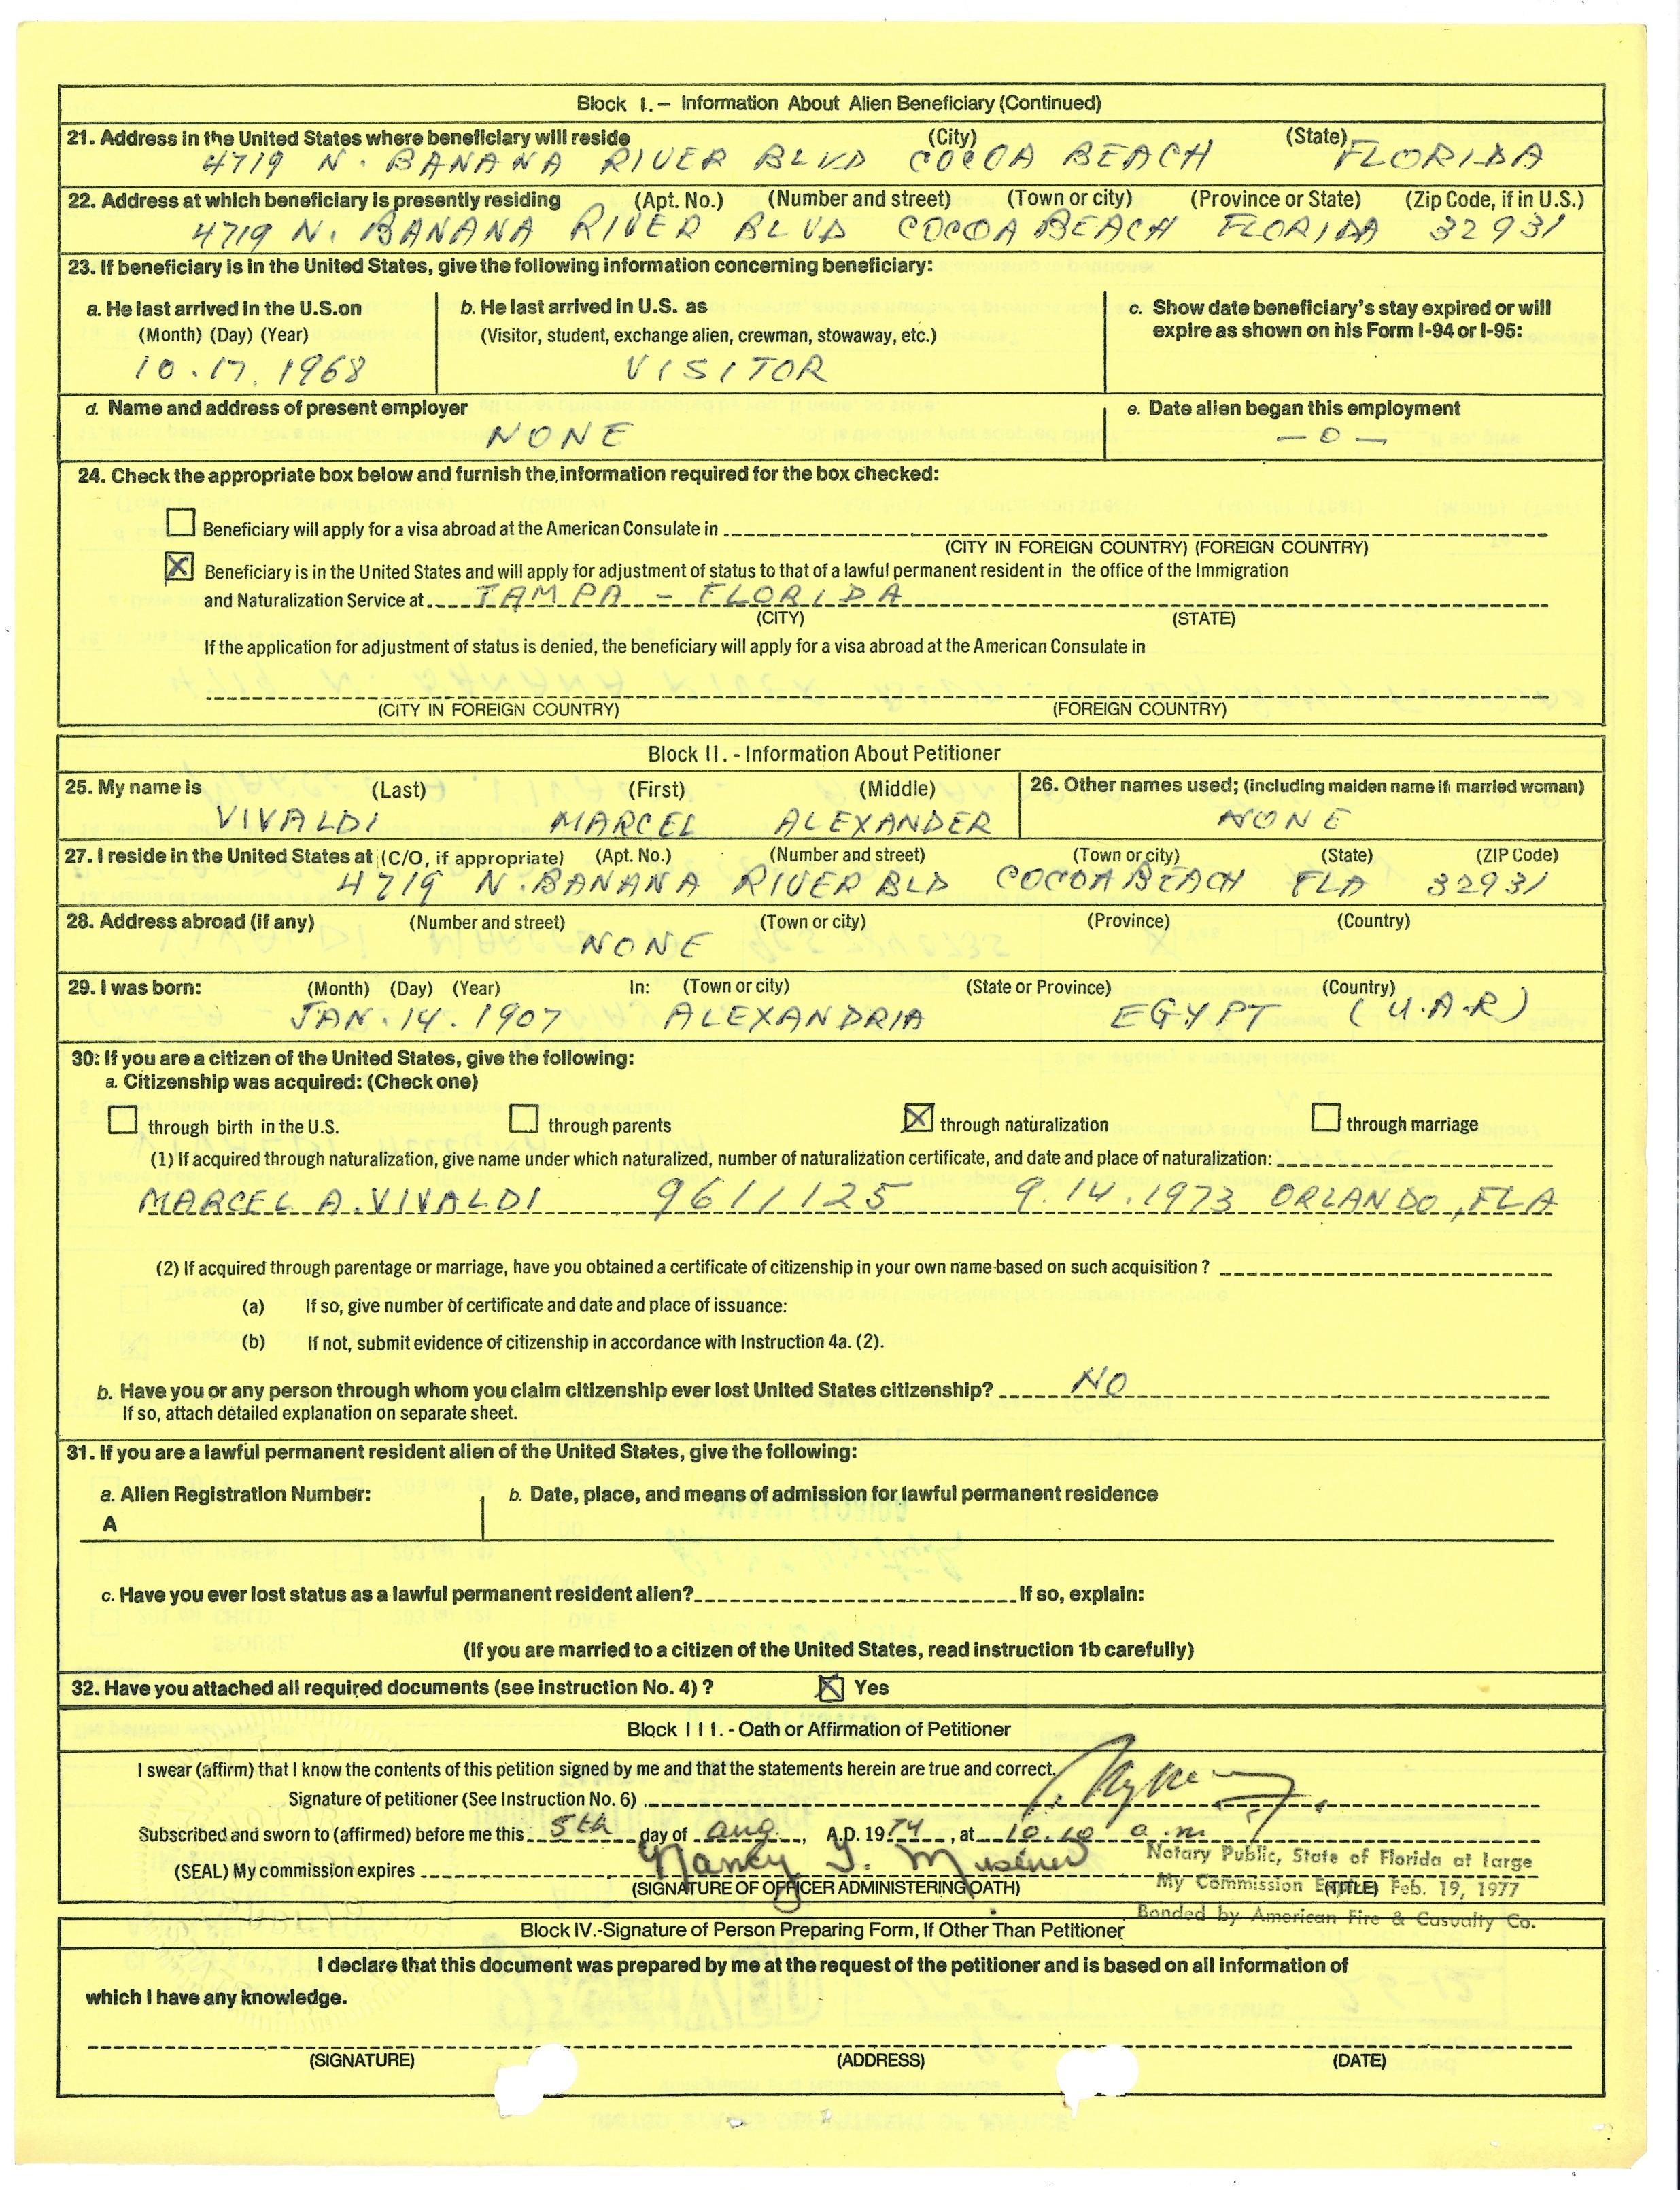 Block I. — Information About Alien Beneficiary (Continued)
21. Address in the United States where beneficiary will reside (City) (State)
4719 N. BANANA RIVER BLVD COCOA BEACH FLORIDA
22. Address at which beneficiary is presently residing (Apt. No.) (Number and street) (Town or city) (Province or State) (Zip Code, if in U.S.)
4719 N. BANANA RIVER BLVD COCOA BEACH FLORIDA 32931
23. If beneficiary is in the United States, give the following information concerning beneficiary:
a. He last arrived in the U.S. on
(Month) (Day) (Year)
10.17.1968
b. He last arrived in U.S. as
(Visitor, student, exchange alien, crewman, stowaway, etc.)
VISITOR
c. Show date beneficiary's stay expired or will
expire as shown on his Form I-94 or I-95:
d. Name and address of present employer
NONE
e. Date alien began this employment
— 0 —
24. Check the appropriate box below and furnish the information required for the box checked:
Beneficiary will apply for a visa abroad at the American Consulate in
(CITY IN FOREIGN COUNTRY) (FOREIGN COUNTRY)
X Beneficiary is in the United States and will apply for adjustment of status to that of a lawful permanent resident in the office of the Immigration
and Naturalization Service at TAMPA - FLORIDA
(CITY) (STATE)
If the application for adjustment of status is denied, the beneficiary will apply for a visa abroad at the American Consulate in
(CITY IN FOREIGN COUNTRY) (FOREIGN COUNTRY)
Block II. - Information About Petitioner
25. My name is (Last) (First) (Middle)
VIVALDI MARCEL ALEXANDER
26. Other names used; (including maiden name if married woman)
NONE
27. I reside in the United States at (C/O, if appropriate) (Apt. No.) (Number and street) (Town or city) (State) (ZIP Code)
4719 N. BANANA RIVER BLD COCOA BEACH FLA 32931
28. Address abroad (if any) (Number and street) (Town or city) (Province) (Country)
NONE
29. I was born: (Month) (Day) (Year) In: (Town or city) (State or Province) (Country)
JAN. 14. 1907 ALEXANDRIA EGYPT (U.A.R)
30. If you are a citizen of the United States, give the following:
a. Citizenship was acquired: (Check one)
through birth in the U.S. through parents X through naturalization through marriage
(1) If acquired through naturalization, give name under which naturalized, number of naturalization certificate, and date and place of naturalization:
MARCEL A. VIVALDI 9611125 9.14.1973 ORLANDO, FLA
(2) If acquired through parentage or marriage, have you obtained a certificate of citizenship in your own name based on such acquisition ?
(a) If so, give number of certificate and date and place of issuance:
(b) If not, submit evidence of citizenship in accordance with Instruction 4a. (2).
b. Have you or any person through whom you claim citizenship ever lost United States citizenship? NO
If so, attach detailed explanation on separate sheet.
31. If you are a lawful permanent resident alien of the United States, give the following:
a. Alien Registration Number:
A
b. Date, place, and means of admission for lawful permanent residence
c. Have you ever lost status as a lawful permanent resident alien? If so, explain:
(If you are married to a citizen of the United States, read instruction 1b carefully)
32. Have you attached all required documents (see instruction No. 4) ? X Yes
Block III. - Oath or Affirmation of Petitioner
I swear (affirm) that I know the contents of this petition signed by me and that the statements herein are true and correct.
Signature of petitioner (See Instruction No. 6)
Subscribed and sworn to (affirmed) before me this 5th day of aug., A.D. 1974, at 10.10 a.m
(SEAL) My commission expires Nancy G. Misener
(SIGNATURE OF OFFICER ADMINISTERING OATH) (TITLE)
Notary Public, State of Florida at large
My Commission Expires Feb. 19, 1977
Bonded by American Fire & Casualty Co.
Block IV.-Signature of Person Preparing Form, If Other Than Petitioner
I declare that this document was prepared by me at the request of the petitioner and is based on all information of
which I have any knowledge.
(SIGNATURE) (ADDRESS) (DATE)